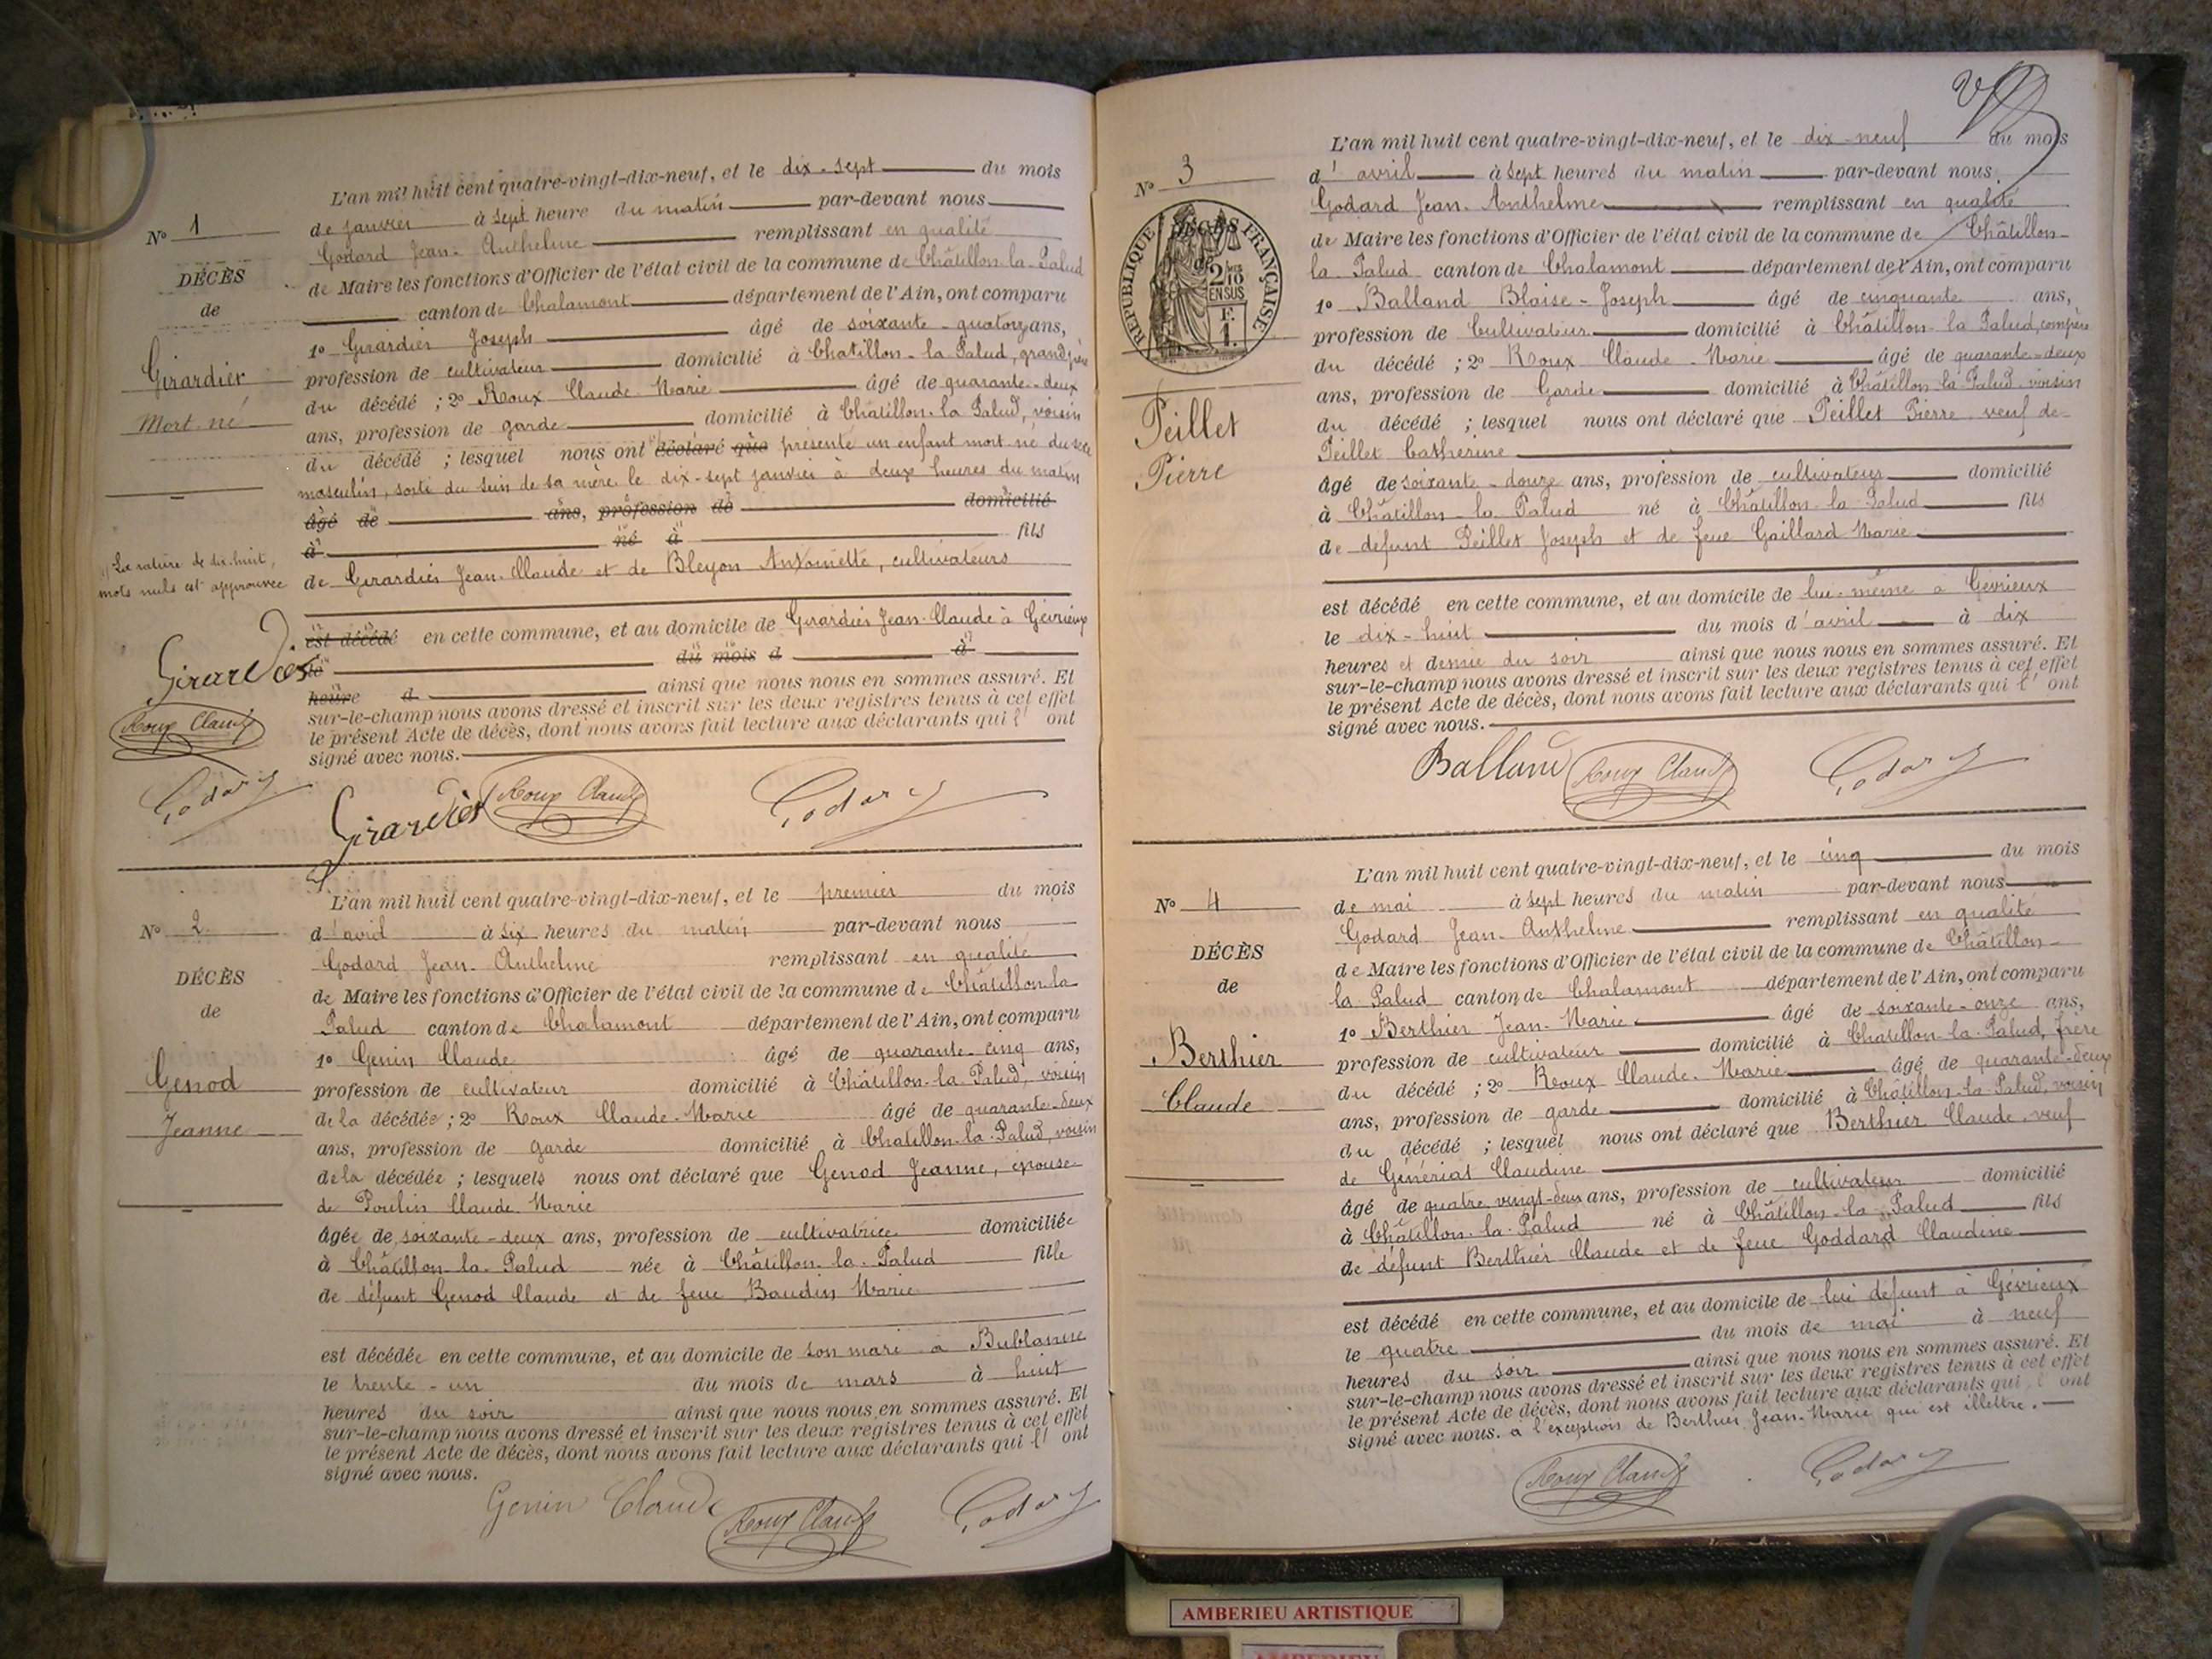 L'an mil huit cent quatre-vingt-dix-neuf, et le dix-sept du mois
N° 1
de janvier à sept heure du matin par-devant nous
Godard Jean-Anthelme remplissant en qualité
DÉCÈS
de Maire les fonctions d'Officier de l'état civil de la commune de Châtillon-la-Palud
de
canton de Chalamont département de l'Ain, ont comparu
1° Girardier Joseph âgé de soixante-quatorze ans,
Girardier
profession de cultivateur domicilié à Châtillon-la-Palud, grand père
Mort-né
du décédé ; 2° Roux Claude-Marie âgé de quarante-deux
ans, profession de garde domicilié à Châtillon-la Palud, voisin
du décédé ; lesquel nous ont déclaré que présenté un enfant mort-né du sexe
masculin, sorti du sein de sa mère le dix-sept janvier à deux heures du matin
âgé de ans, profession de domicilié
à né à fils
La rature de dix-huit
mots nuls est approuvée
de Girardier Jean-Claude et de Bleyon Antoinette, cultivateurs
est décédé en cette commune, et au domicile de Girardier Jean-Claude à Gévrieux
le du mois d à
heure d ainsi que nous nous en sommes assuré. Et
sur-le-champ nous avons dressé et inscrit sur les deux registres tenus à cet effet
le présent Acte de décès, dont nous avons fait lecture aux déclarants qui l' ont
signé avec nous.
Girardier
Roux Claude
Godard
Girardier Roux Claude Godard
L'an mil huit cent quatre-vingt-dix-neuf, et le premier du mois
N° 2
d'avril à six heures du matin par-devant nous
Godard Jean-Anthelme remplissant en qualité
DÉCÈS
de Maire les fonctions d'Officier de l'état civil de la commune de Châtillon-la
de
Palud canton de Chalamont département de l'Ain, ont comparu
1° Genin Claude âgé de quarante-cinq ans,
Genod
profession de cultivateur domicilié à Châtillon-la-Palud, voisin
Jeanne
de la décédée ; 2° Roux Claude-Marie âgé de quarante-deux
ans, profession de garde domicilié à Châtillon-la-Palud, voisin
de la décédée ; lesquels nous ont déclaré que Genod Jeanne, épouse
de Poulin Claude-Marie
âgée de soixante-deux ans, profession de cultivatrice domiciliée
à Châtillon-la-Palud née à Châtillon-la-Palud fille
de défunt Genod Claude et de feue Baudin Marie
est décédée en cette commune, et au domicile de son mari à Bublanne
le trente-un du mois de mars à huit
heures du soir ainsi que nous nous en sommes assuré. Et
sur-le-champ nous avons dressé et inscrit sur les deux registres tenus à cet effet
le présent Acte de décès, dont nous avons fait lecture aux déclarants qui l' ont
signé avec nous.
Genin Claude Roux Claude Godard
L'an mil huit cent quatre-vingt-dix-neuf, et le dix-neuf du mois
N° 3
d'avril à sept heures du matin par-devant nous
Godard Jean-Anthelme remplissant en qualité
DÉCÈS
RÉPUBLIQUE FRANÇAISE
2/10 EN SUS
F. 1.
de Maire les fonctions d'Officier de l'état civil de la commune de Châtillon-
la Palud canton de Chalamont département de l'Ain, ont comparu
1° Balland Blaise-Joseph âgé de cinquante ans,
profession de Cultivateur domicilié à Châtillon-la Palud, compère
du décédé ; 2° Roux Claude-Marie âgé de quarante-deux
ans, profession de Garde domicilié à Châtillon-la-Palud voisin
Peillet
Pierre
du décédé ; lesquel nous ont déclaré que Peillet Pierre veuf de
Peillet Catherine
âgé de soixante-douze ans, profession de cultivateur domicilié
à Châtillon-la Palud né à Châtillon-la-Palud fils
de défunt Peillet Joseph et de feue Gaillard Marie
est décédé en cette commune, et au domicile de lui-même à Gévrieux
le dix-huit du mois d'avril à dix
heures et demie du soir ainsi que nous nous en sommes assuré. Et
sur-le-champ nous avons dressé et inscrit sur les deux registres tenus à cet effet
le présent Acte de décès, dont nous avons fait lecture aux déclarants qui l' ont
signé avec nous.
Balland Roux Claude Godard
L'an mil huit cent quatre-vingt-dix-neuf, et le cinq du mois
N° 4
de mai à sept heures du matin par-devant nous
Godard Jean-Anthelme remplissant en qualité
DÉCÈS
de Maire les fonctions d'Officier de l'état civil de la commune de Châtillon-
de
la Palud canton de Chalamont département de l'Ain, ont comparu
1° Berthier Jean-Marie âgé de soixante-onze ans,
Berthier
profession de cultivateur domicilié à Châtillon-la-Palud, frère
Claude
du décédé ; 2° Roux Claude-Marie âgé de quarante-deux
ans, profession de garde domicilié à Châtillon-la Palud, voisin
du décédé ; lesquel nous ont déclaré que Berthier Claude veuf
de Génériat Claudine
âgé de quatre vingt-deux ans, profession de cultivateur domicilié
à Châtillon-la-Palud né à Châtillon-la-Palud fils
de défunt Berthier Claude et de feue Goddard Claudine
est décédé en cette commune, et au domicile de lui défunt à Gévrieux
le quatre du mois de mai à neuf
heures du soir ainsi que nous nous en sommes assuré. Et
sur-le-champ nous avons dressé et inscrit sur les deux registres tenus à cet effet
le présent Acte de décès, dont nous avons fait lecture aux déclarants qui l' ont
signé avec nous. à l'exception de Berthier Jean-Marie qui est illettré.
Roux Claude Godard
AMBERIEU ARTISTIQUE
AMBERIEU